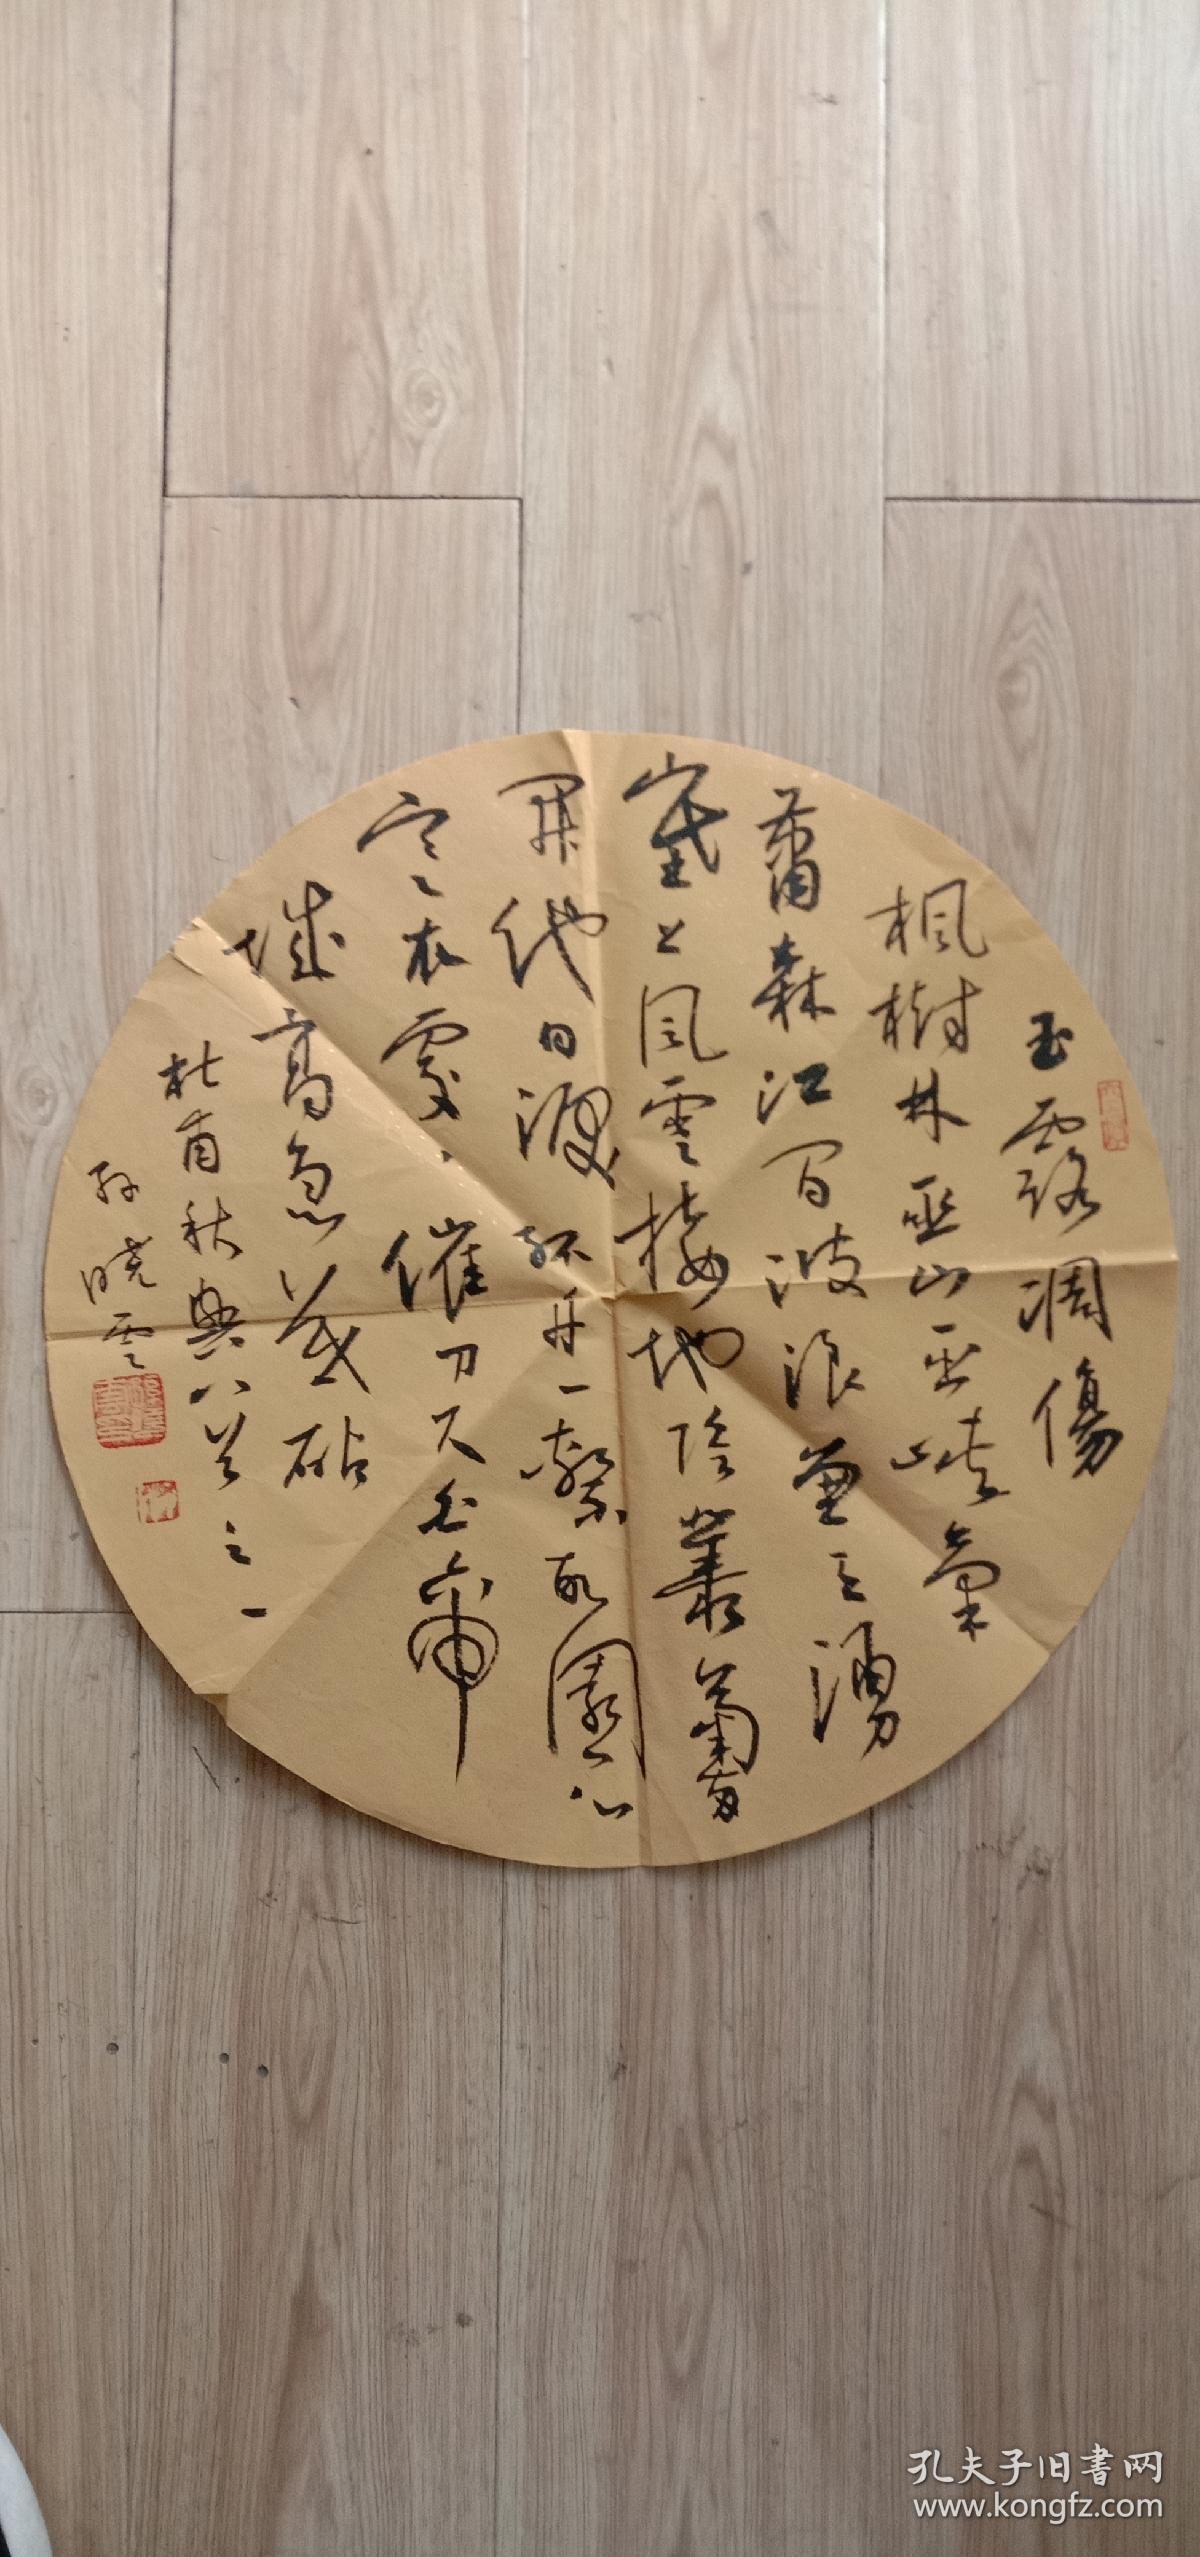 玉露凋傷
楓樹林巫山巫峡氣
蕭森江间波浪兼天湧
塞上风雲接地陰叢菊两
開他日淚孤舟一繫故園心
寒衣處々催刀尺白帝
城高急暮砧
杜甫秋興八首之一
孙曉雲
孔夫子旧书网
www.kongfz.com